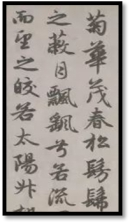 菊華茂春松髣髴
之蔽月飄颻兮若流
而望之皎若太陽升朝